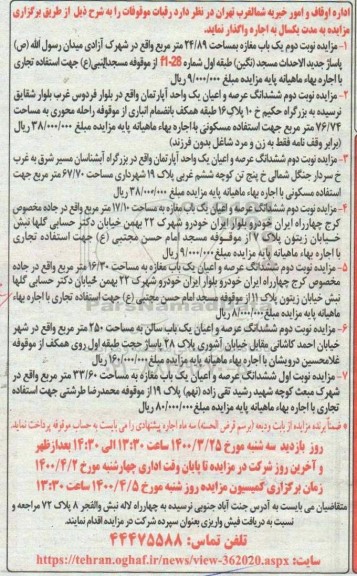 اداره اوقاف و امور خیریه شمالغرب تهران در نظر دارد رقبات موقوفات را به شرح ذیل از طریق برگزاری
مزایده به مدت یکسال به اجاره واگذار نماید.
۱- مزایده نوبت دوم یک باب مغازه بمساحت ۲۴/۸۹ متر مربع واقع در شهرک آزادی میدان رسول الله (ص)
پاساژ جدید الاحداث مسجد (نگین) طبقه اول شماره f1-28 از موقوفه مسجدالنبی(ع) جهت استفاده تجاری
با اجاره بهاء ماهیانه پایه مزایده مبلغ ۹/۰۰۰/۰۰۰ ریال
۲- مزایده نوبت دوم ششدانگ عرصه و اعیان یک واحد آپارتمان واقع در بلوار فردوس غرب بلوار شقایق
نرسیده به بزرگراه حکیم خ ۱۰ پلاک۱۶ طبقه همکف بانضمام انباری از موقوفه راحله محوری به مساحت
۷۶/۷۴ متر مربع جهت استفاده مسکونی با اجاره بهاء ماهیانه پایه مزایده مبلغ ۳۸/۰۰۰/۰۰۰ ریال
(برابر وقف نامه فقط به زن و مرد شاغل بدون فرزند)
۳- مزایده نوبت دوم ششدانگ عرصه و اعیان یک واحد آپارتمان واقع در بزرگراه آبشناسان مسیر شرق به غرب
خ سردار جنگل شمالی خ پنج تن کوچه ششم غربی پلاک ۱۹ شهرداری مساحت ۶۷/۷۰ متر مربع جهت
استفاده مسکونی با اجاره بهاء ماهیانه پایه مزایده مبلغ ۳۸/۰۰۰/۰۰۰ ریال
۴- مزایده نوبت دوم ششدانگ عرصه و اعیان یک باب مغازه به مساحت ۱۷/۱۰ متر مربع واقع در جاده مخصوص
کرج چهارراه ایران خودرو بلوار ایران خودرو شهرک ۲۲ بهمن خیابان دکتر حسابی گلها نبش
خیابان زیتون پلاک ۷ از موقوفه مسجد امام حسن مجتبی (ع) جهت استفاده تجاری
با اجاره بهاء ماهیانه پایه مزایده مبلغ ۹/۰۰۰/۰۰۰ ریال
۵- مزایده نوبت دوم ششدانگ عرصه و اعیان یک باب مغازه به مساحت ۱۶/۳۰ متر مربع واقع در جاده
مخصوص کرج چهارراه ایران خودرو بلوار ایران خودرو شهرک ۲۲ بهمن خیابان دکتر حسابی گلها
نبش خیابان زیتون پلاک ۱۱ از موقوفه مسجد امام حسن مجتبی (ع) جهت استفاده تجاری با اجاره بهاء
ماهیانه پایه مزایده مبلغ ۸/۰۰۰/۰۰۰ ریال
۶- مزایده نوبت دوم ششدانگ عرصه و اعیان یک باب سالن به مساحت ۲۵۰ متر مربع واقع در شهر
خیابان احمد کاشانی مقابل خیابان آشوری پلاک ۲۸ پاساژ حجت طبقه اول روی همکف از موقوفه
غلامحسین درویشان با اجاره بهاء ماهیانه پایه مزایده مبلغ ۱۶۰/۰۰۰/۰۰۰ ریال
۷- مزایده نوبت اول ششدانگ عرصه و اعیان یک باب مغازه به مساحت ۳۳/۶۰ متر مربع واقع در
شهرک مبعث کوچه شهید رشید تقی زاده (نهم) پلاک ۱۹ از موقوفه محمدرضا طرشتی جهت استفاده
تجاری با اجاره بهاء ماهیانه پایه مزایده مبلغ ۸۰/۰۰۰/۰۰۰ ریال
* ضمناً برنده مزایده از بابت ودیعه (برسم قرض الحسنه) سه ماه اجاره پیشنهادی را می بایست به حساب موقوفه پرداخت نماید.
روز بازدید سه شنبه مورخ ۱۴۰۰/۳/۲۵ ساعت ۱۳:۳۰ الی ۱۴:۳۰ بعدازظهر
و آخرین روز شرکت در مزایده تا پایان وقت اداری چهارشنبه مورخ ۱۴۰۰/۴/۲
زمان برگزاری کمیسیون مزایده روز شنبه مورخ ۱۴۰۰/۴/۵ ساعت ۱۳:۳۰
متقاضیان می بایست به آدرس جنت آباد جنوبی نرسیده به چهارراه لاله نبش والفجر ۸ پلاک ۷۲ مراجعه و
نسبت به دریافت فیش واریزی بعنوان سپرده شرکت در مزایده اقدام نمایند.
تلفن تماس: ۴۴۴۷۵۵۸۸
سایت: https://tehran.oghaf.ir/news/view-362020.aspx